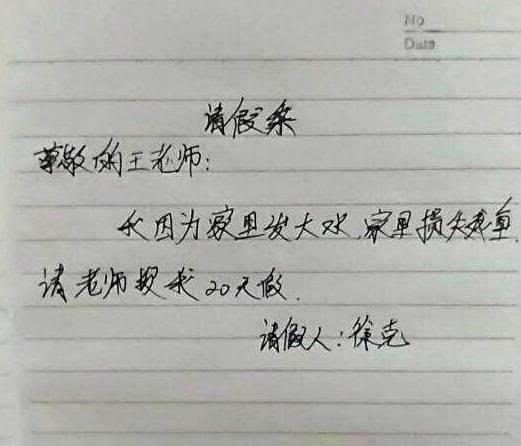 No
Date
请假条
尊敬的王老师:
我因为家里发大水,家里损失残重
请老师投我20天假.
请假人:徐克